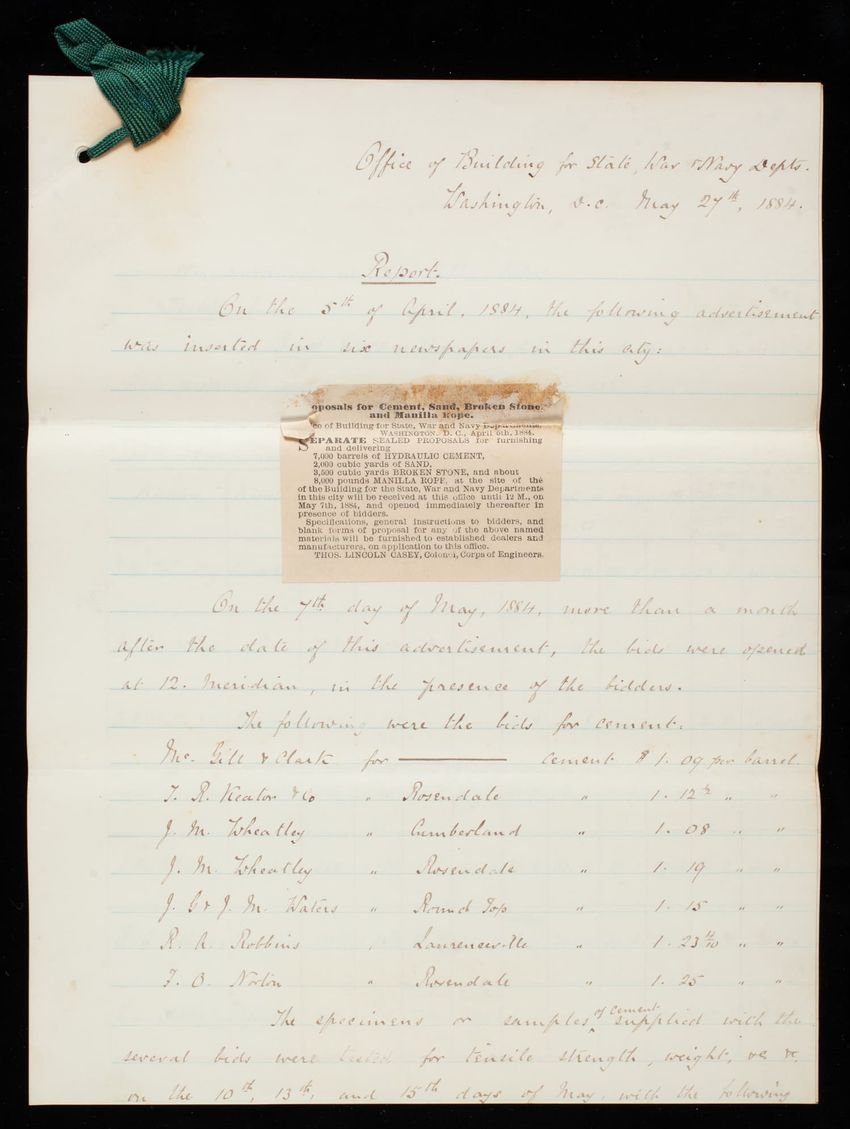 Office of Building for State, War & Navy Depts.
Washington, D.C. May 27th, 1884.
Report.
On the 5th of April, 1884, the following advertisement
was inserted in six newspapers in this city:
oposals for Cement, Sand, Broken Stone
and Manilla Rope.
ce of Building for State, War and Navy Departments,
WASHINGTON, D. C., April 5th, 1884.
SEPARATE SEALED PROPOSALS for furnishing
and delivering
7,000 barrels of HYDRAULIC CEMENT,
2,000 cubic yards of SAND,
3,500 cubic yards BROKEN STONE, and about
8,000 pounds MANILLA ROPE, at the site of the
of the Building for the State, War and Navy Departments
in this city will be received at this office until 12 M., on
May 7th, 1884, and opened immediately thereafter in
presence of bidders.
Specifications, general instructions to bidders, and
blank forms of proposal for any of the above named
materials will be furnished to established dealers and
manufacturers, on application to this office.
THOS. LINCOLN CASEY, Colonel, Corps of Engineers.
On the 7th day of May, 1884, more than a month
after the date of this advertisement, the bids were opened
at 12. Meridian, in the presence of the bidders.
The following were the bids for cement.
Mc. Gill & Clark for ——— cement $1.09 per barrel.
F. R. Keator & Co " Rosendale " 1.12½ " "
J. M. Wheatley " Cumberland " 1.08 " "
J. M. Wheatley " Rosendale " 1.19 " "
J. G & J. M. Waters " Round Top " 1.15 " "
R. A. Robbins " Lawrenceville " 1.23 " "
F. O. Norton " Rosendale " 1.25 " "
The specimens or samples of cement supplied with the
several bids were tested for tensile strength, weight, &c &c,
on the 10th, 13th, and 15th days of May, with the following